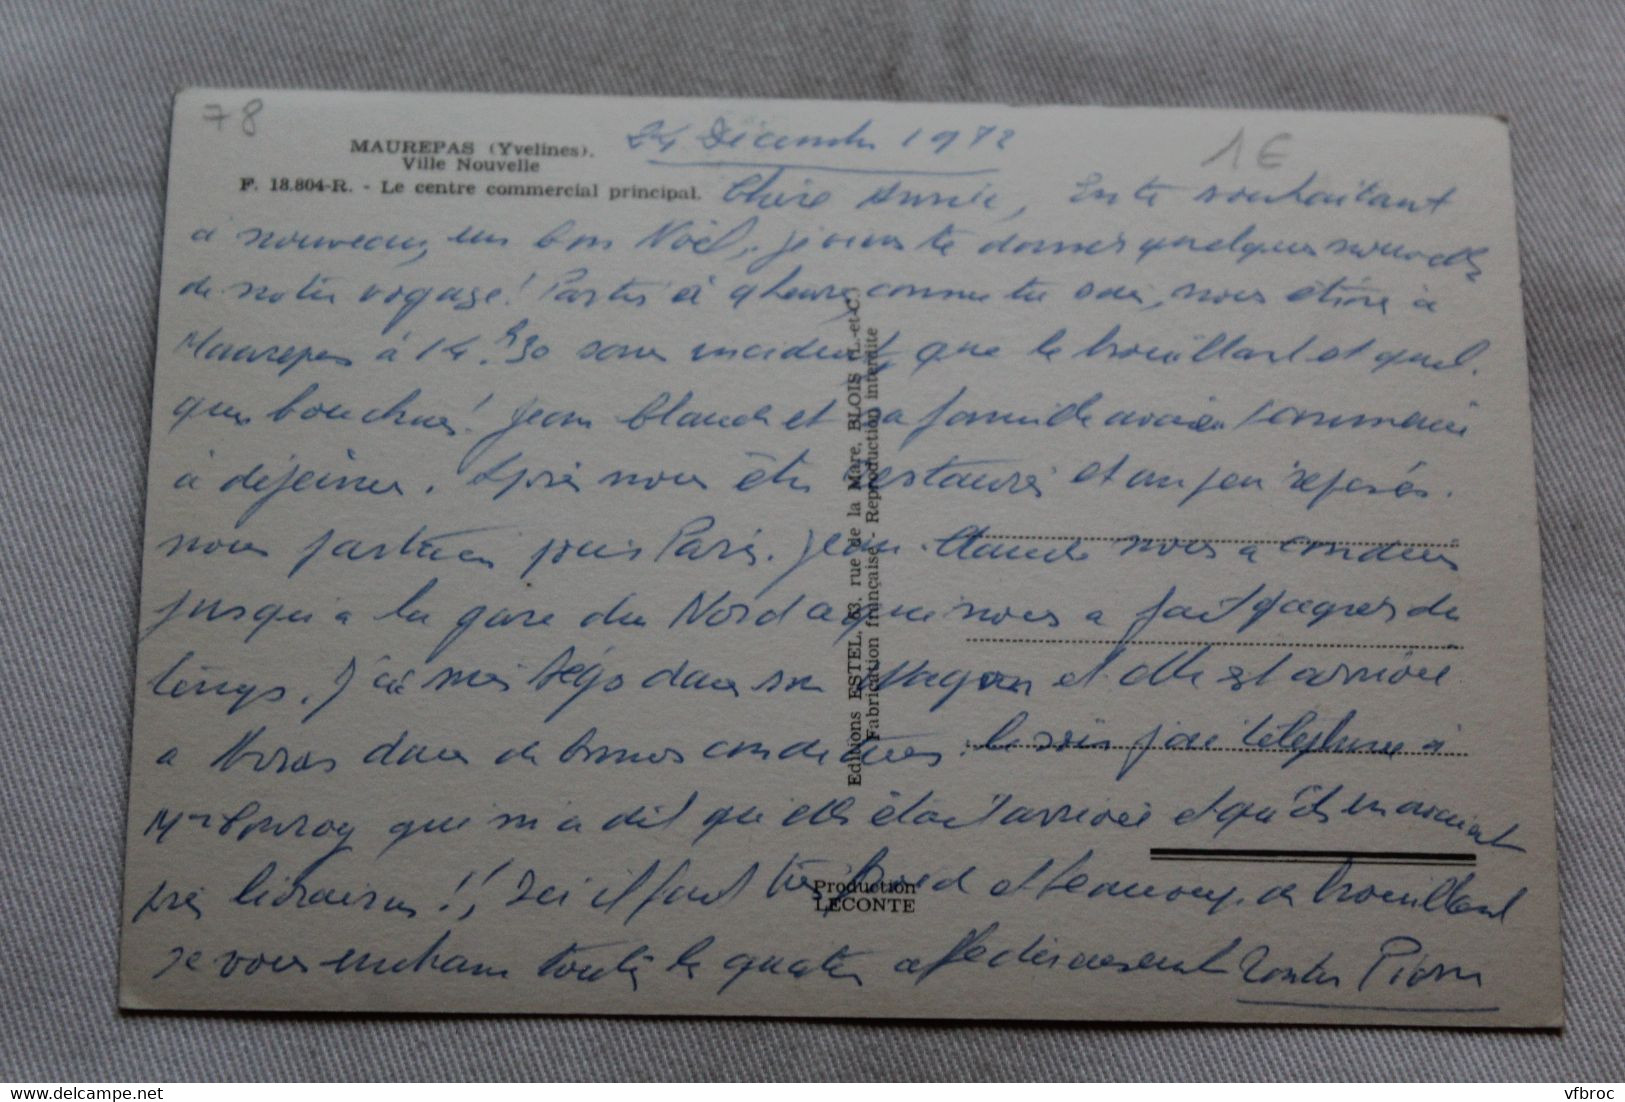 78
MAUREPAS (Yvelines).
Ville Nouvelle
F. 18.804-R. - Le centre commercial principal.
24 Décembre 1972
1€
Chère Annie, En te souhaitant
à nouveau, un bon Noël, je vais te donner quelques nouvelles
de notre voyage! Partis à 9 heures comme tu sais, nous étions à
Maurepas à 14h30 sans incident que le brouillard et quel-
ques bouchons! Jean Claude et sa famille avaient commencé
à déjeuner. Après nous être restaurés et un peu reposés.
nous partîmes pour Paris. Jean-Claude nous a conduit
jusqu'à la gare du Nord ce qui nous a fait gagner du
temps. J'ai mis dans son wagon et elle est arrivée
a dans de bonnes conditions. Le soir j'ai téléphoné à
Mme qui m'a dit qu'elle était arrivée et qu'ils en avaient
pris livraison!! Ici il fait très froid et beaucoup de brouillard
Je vous embrasse toutes les quatre affectueusement Tonton Pierre
Editions ESTEL, 63, rue de la Mare, BLOIS (L.-et-C.)
Fabrication française - Reproduction interdite
Production
LECONTE
vfbroc